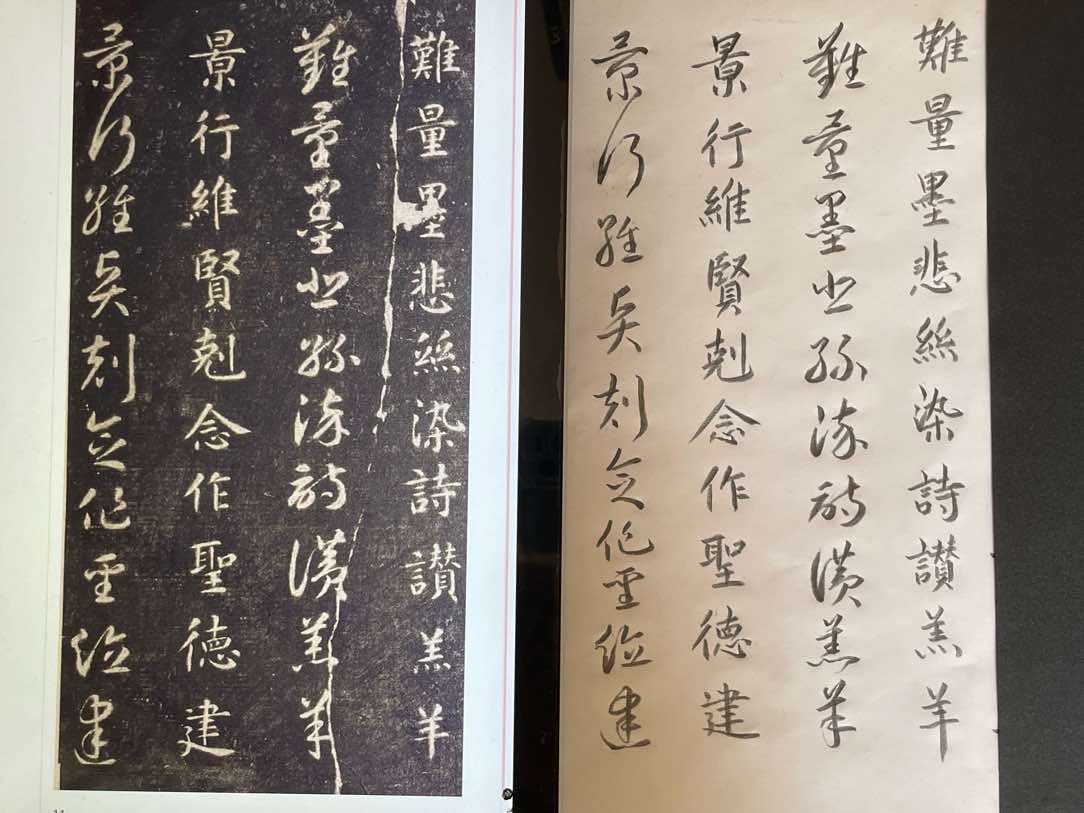 難量墨悲絲染詩讚羔羊
難量墨悲絲染詩讚羔羊
景行維賢剋念作聖德建
景行維賢剋念作聖德建
難量墨悲絲染詩讚羔羊
難量墨悲絲染詩讚羔羊
景行維賢剋念作聖德建
景行維賢剋念作聖德建